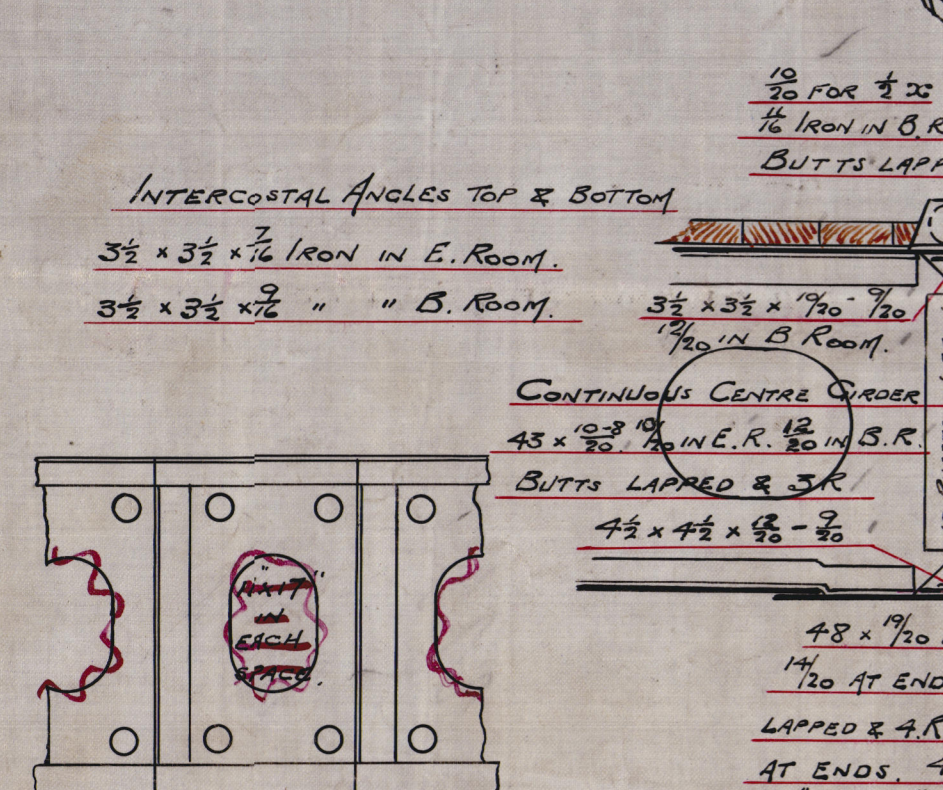 10/20 FOR 1/2 x
11/16 IRON IN B.R
BUTTS LAPP
INTERCOSTAL ANGLES TOP & BOTTOM
3½ x 3½ x 7/16 IRON IN E. ROOM.
3½ x 3½ x 9/16 " " B. ROOM.
3½ x 3½ x 10/20 - 9/20
12/20 IN B ROOM.
CONTINUOUS CENTRE GIRDER
43 x 10-8/20. 10/20 IN E.R. 12/20 IN B.R.
BUTTS LAPPED & 3R
4½ x 4½ x 12/20 - 9/20
IN
EACH
SPACE.
48 x 19/20
14/20 AT END
LAPPED & 4.R
AT ENDS. 4